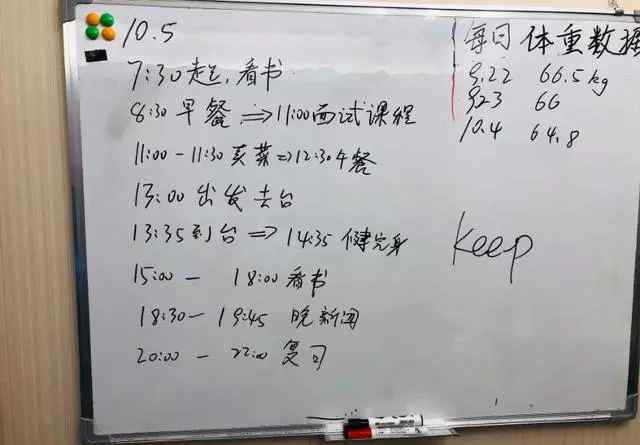 10.5
7:30起,看书
8:30早餐⇒11:00面试课程
11:00-11:30买菜⇒12:30午餐
13:00出发去台
13:35到台⇒14:35健完身
15:00-18:00看书
18:30-19:45晚新闻
20:00-22:00复习
每日体重数据
9.22 66.5kg
9.23 66
10.4 64.8
keep